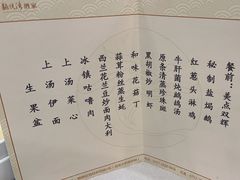 餐前：美点双辉
秘制盐焗鹅
红葱头淋鸡
牛肝菌炖鹧鸪汤
原条清蒸珍珠斑
黑胡椒炒明虾
和味花菇丁
蒜茸粉丝蒸生蚝
西兰花兰豆炒面肉大利
冰镇咕噜肉
上汤菜心
上汤伊面
生果盆